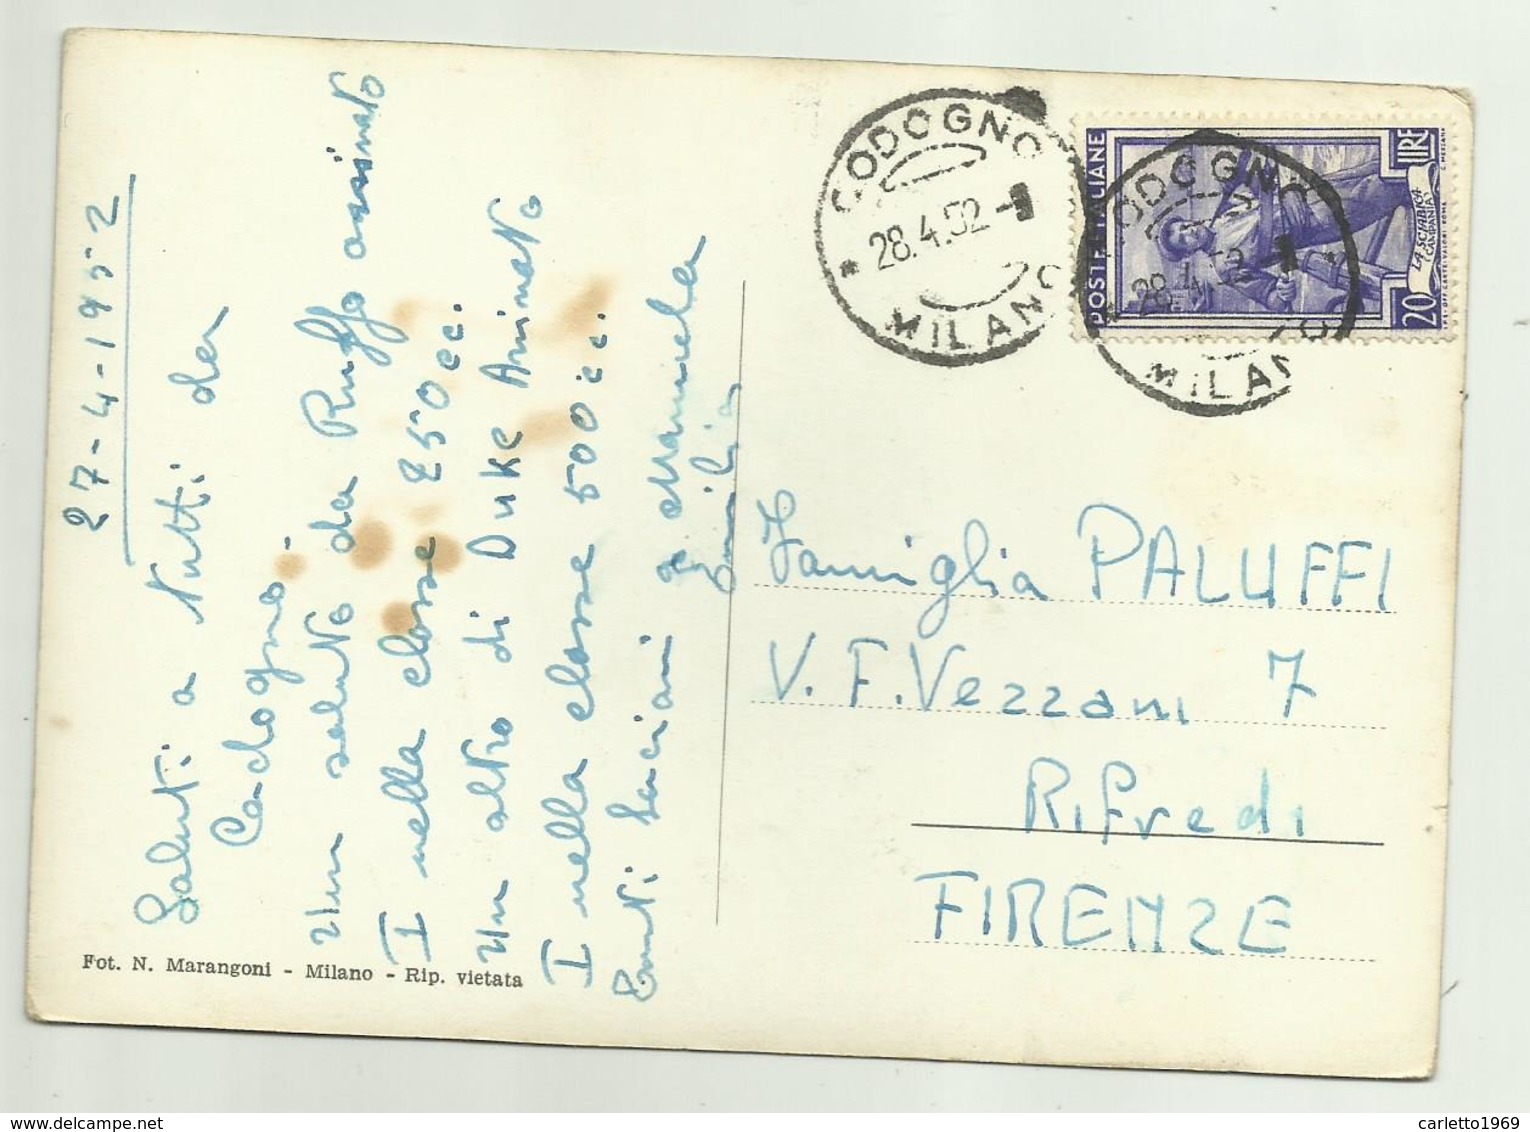 27-4-1952
Saluti a tutti da
Codogno -
Un saluto da Ruffo assinato
I nella classe 250 cc.
Un altro di Duke Aminato
I nella classe 500 cc.
Tanti baciani a Manuela
Emilia
Fot. N. Marangoni - Milano - Rip. vietata
CODOGNO
28.4.52
MILANO
CODOGNO
28.4.52
MILANO
POSTE ITALIANE
LIRE
20
LA SCIABICA
CAMPANIA
Famiglia PALUFFI
V. F. Vezzani 7
Rifredi
FIRENZE
carletto1969